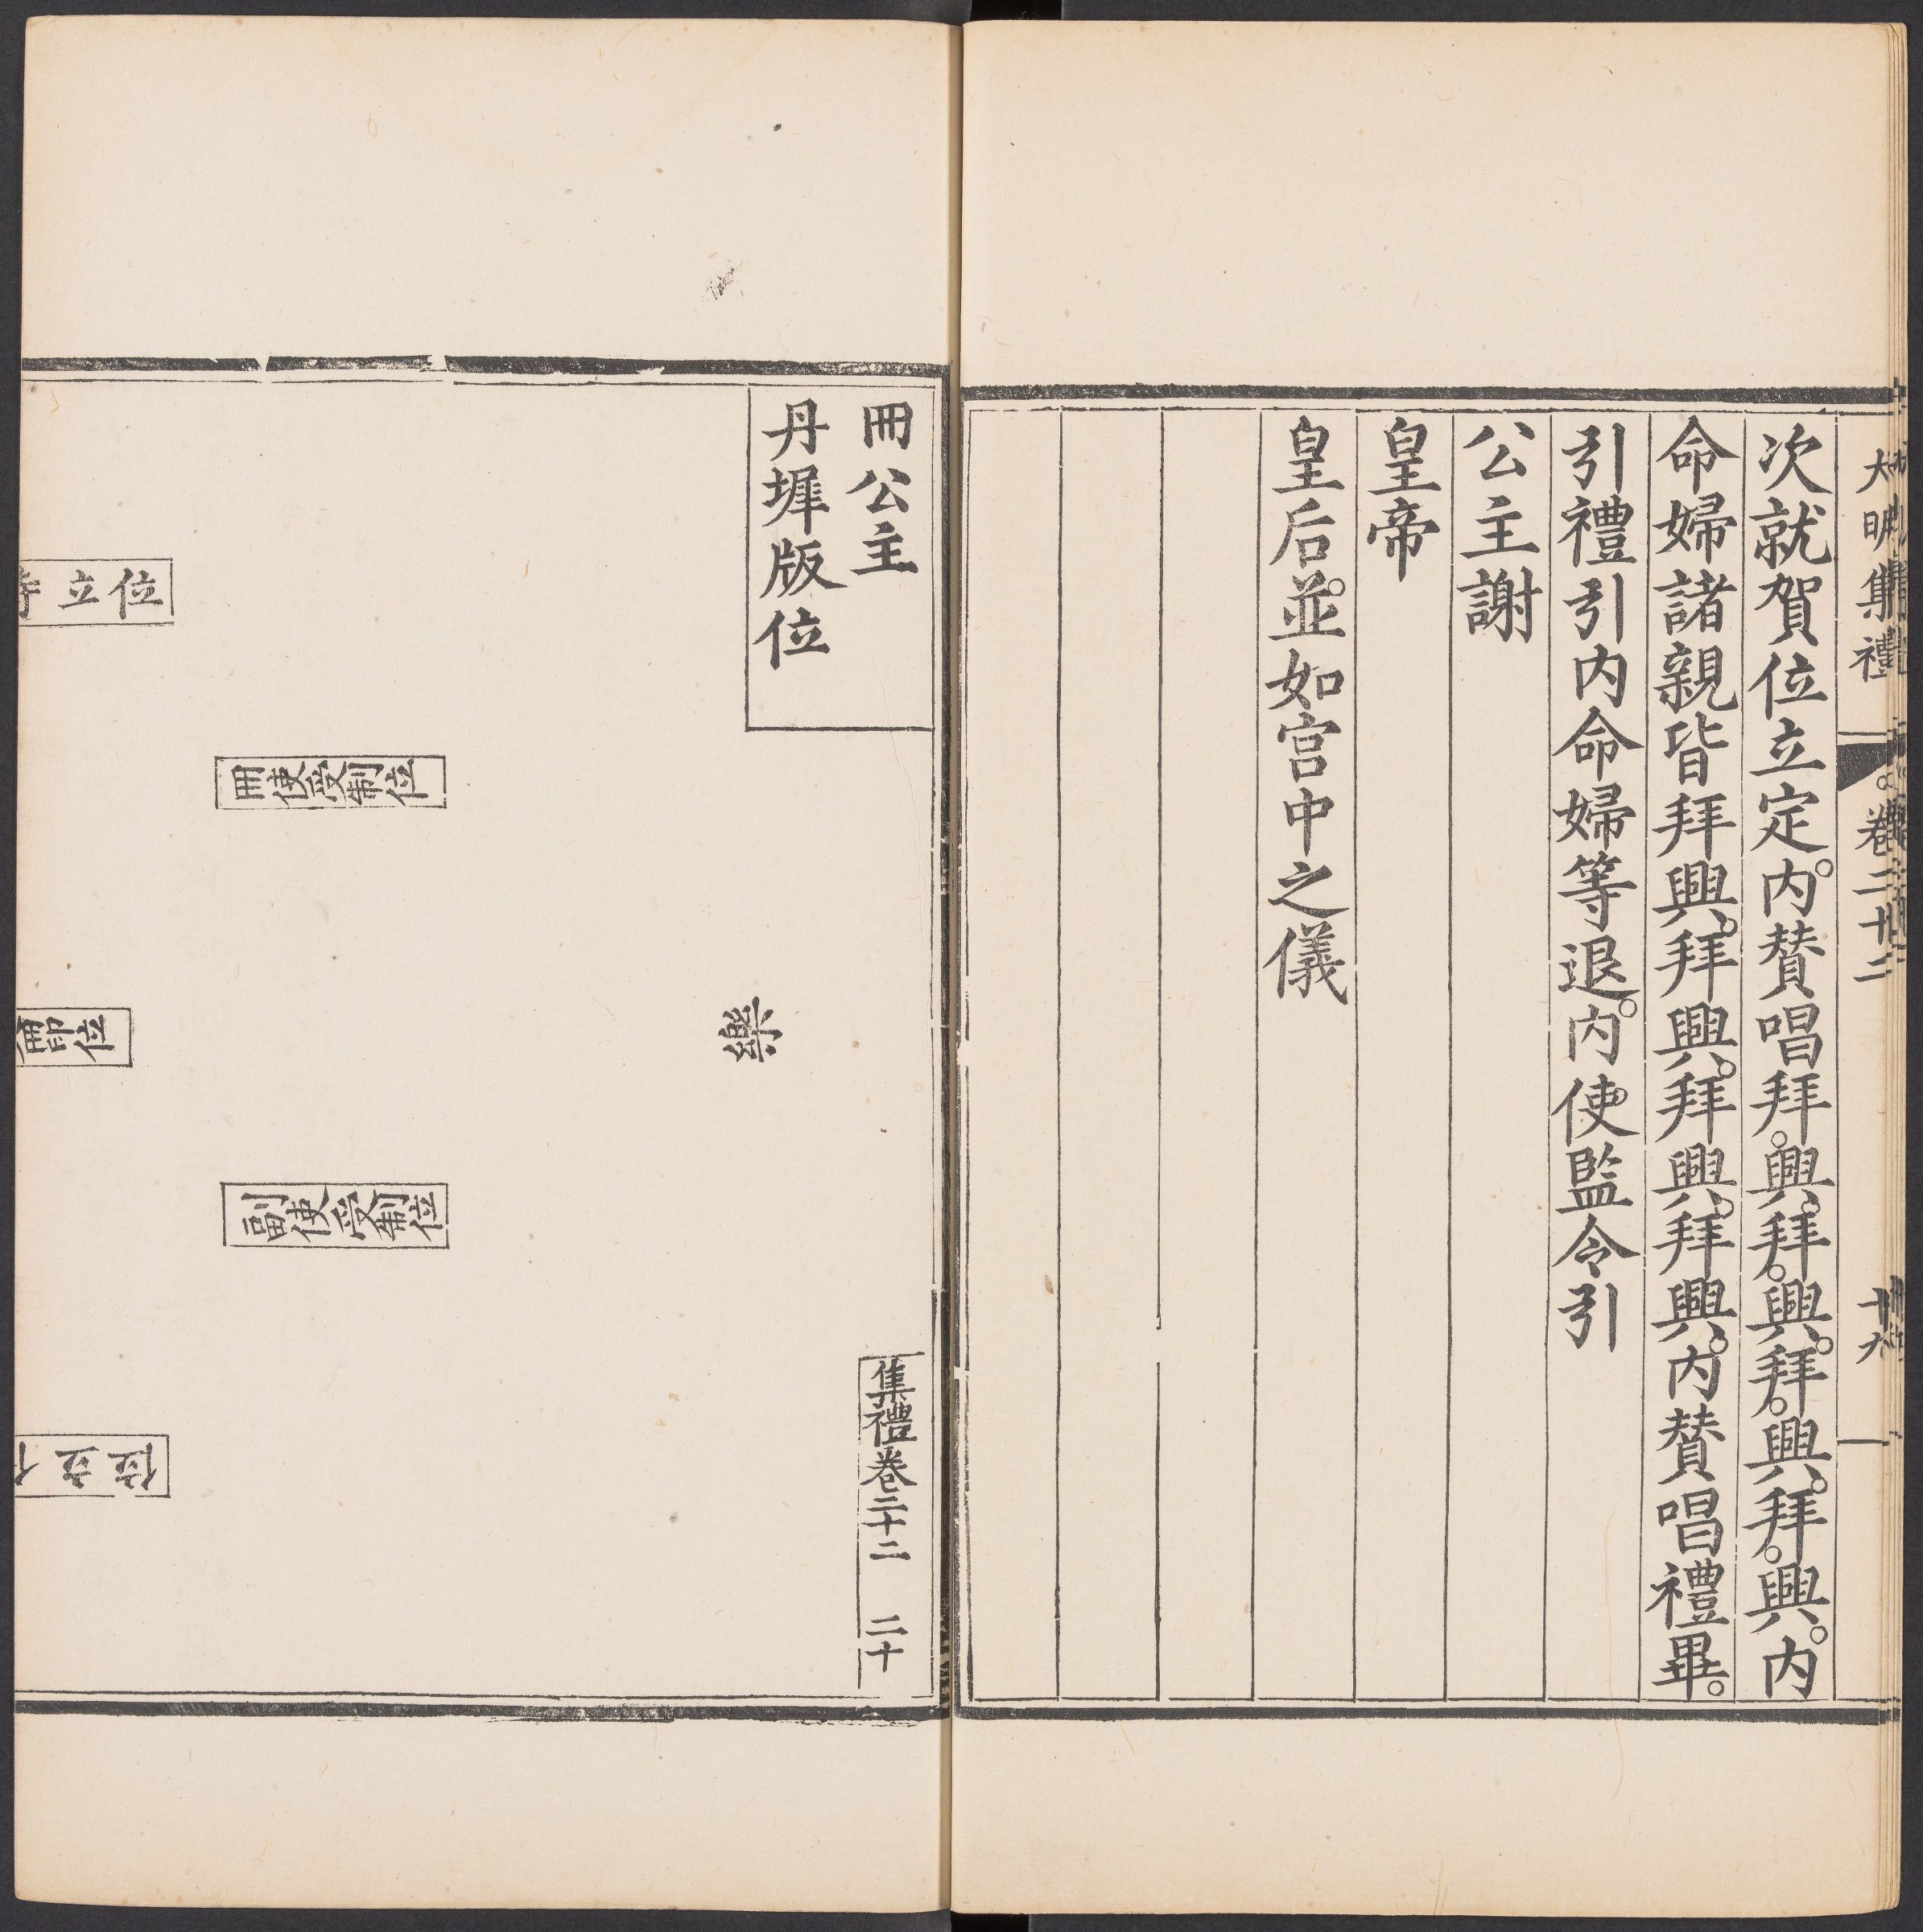 大明集禮 卷二十二 十九
次就賀位立定。內賛唱拜。興。拜。興。拜。興。拜。興。內
命婦諸親皆拜興。拜興。拜興。拜興。內賛唱禮畢。
引禮引內命婦等退。內使監令引
公主謝
皇帝
皇后。並如宮中之儀
冊公主
丹墀版位
集禮卷二十二 二十
樂
冊使受制位
副使受制位
立位
印位
立位